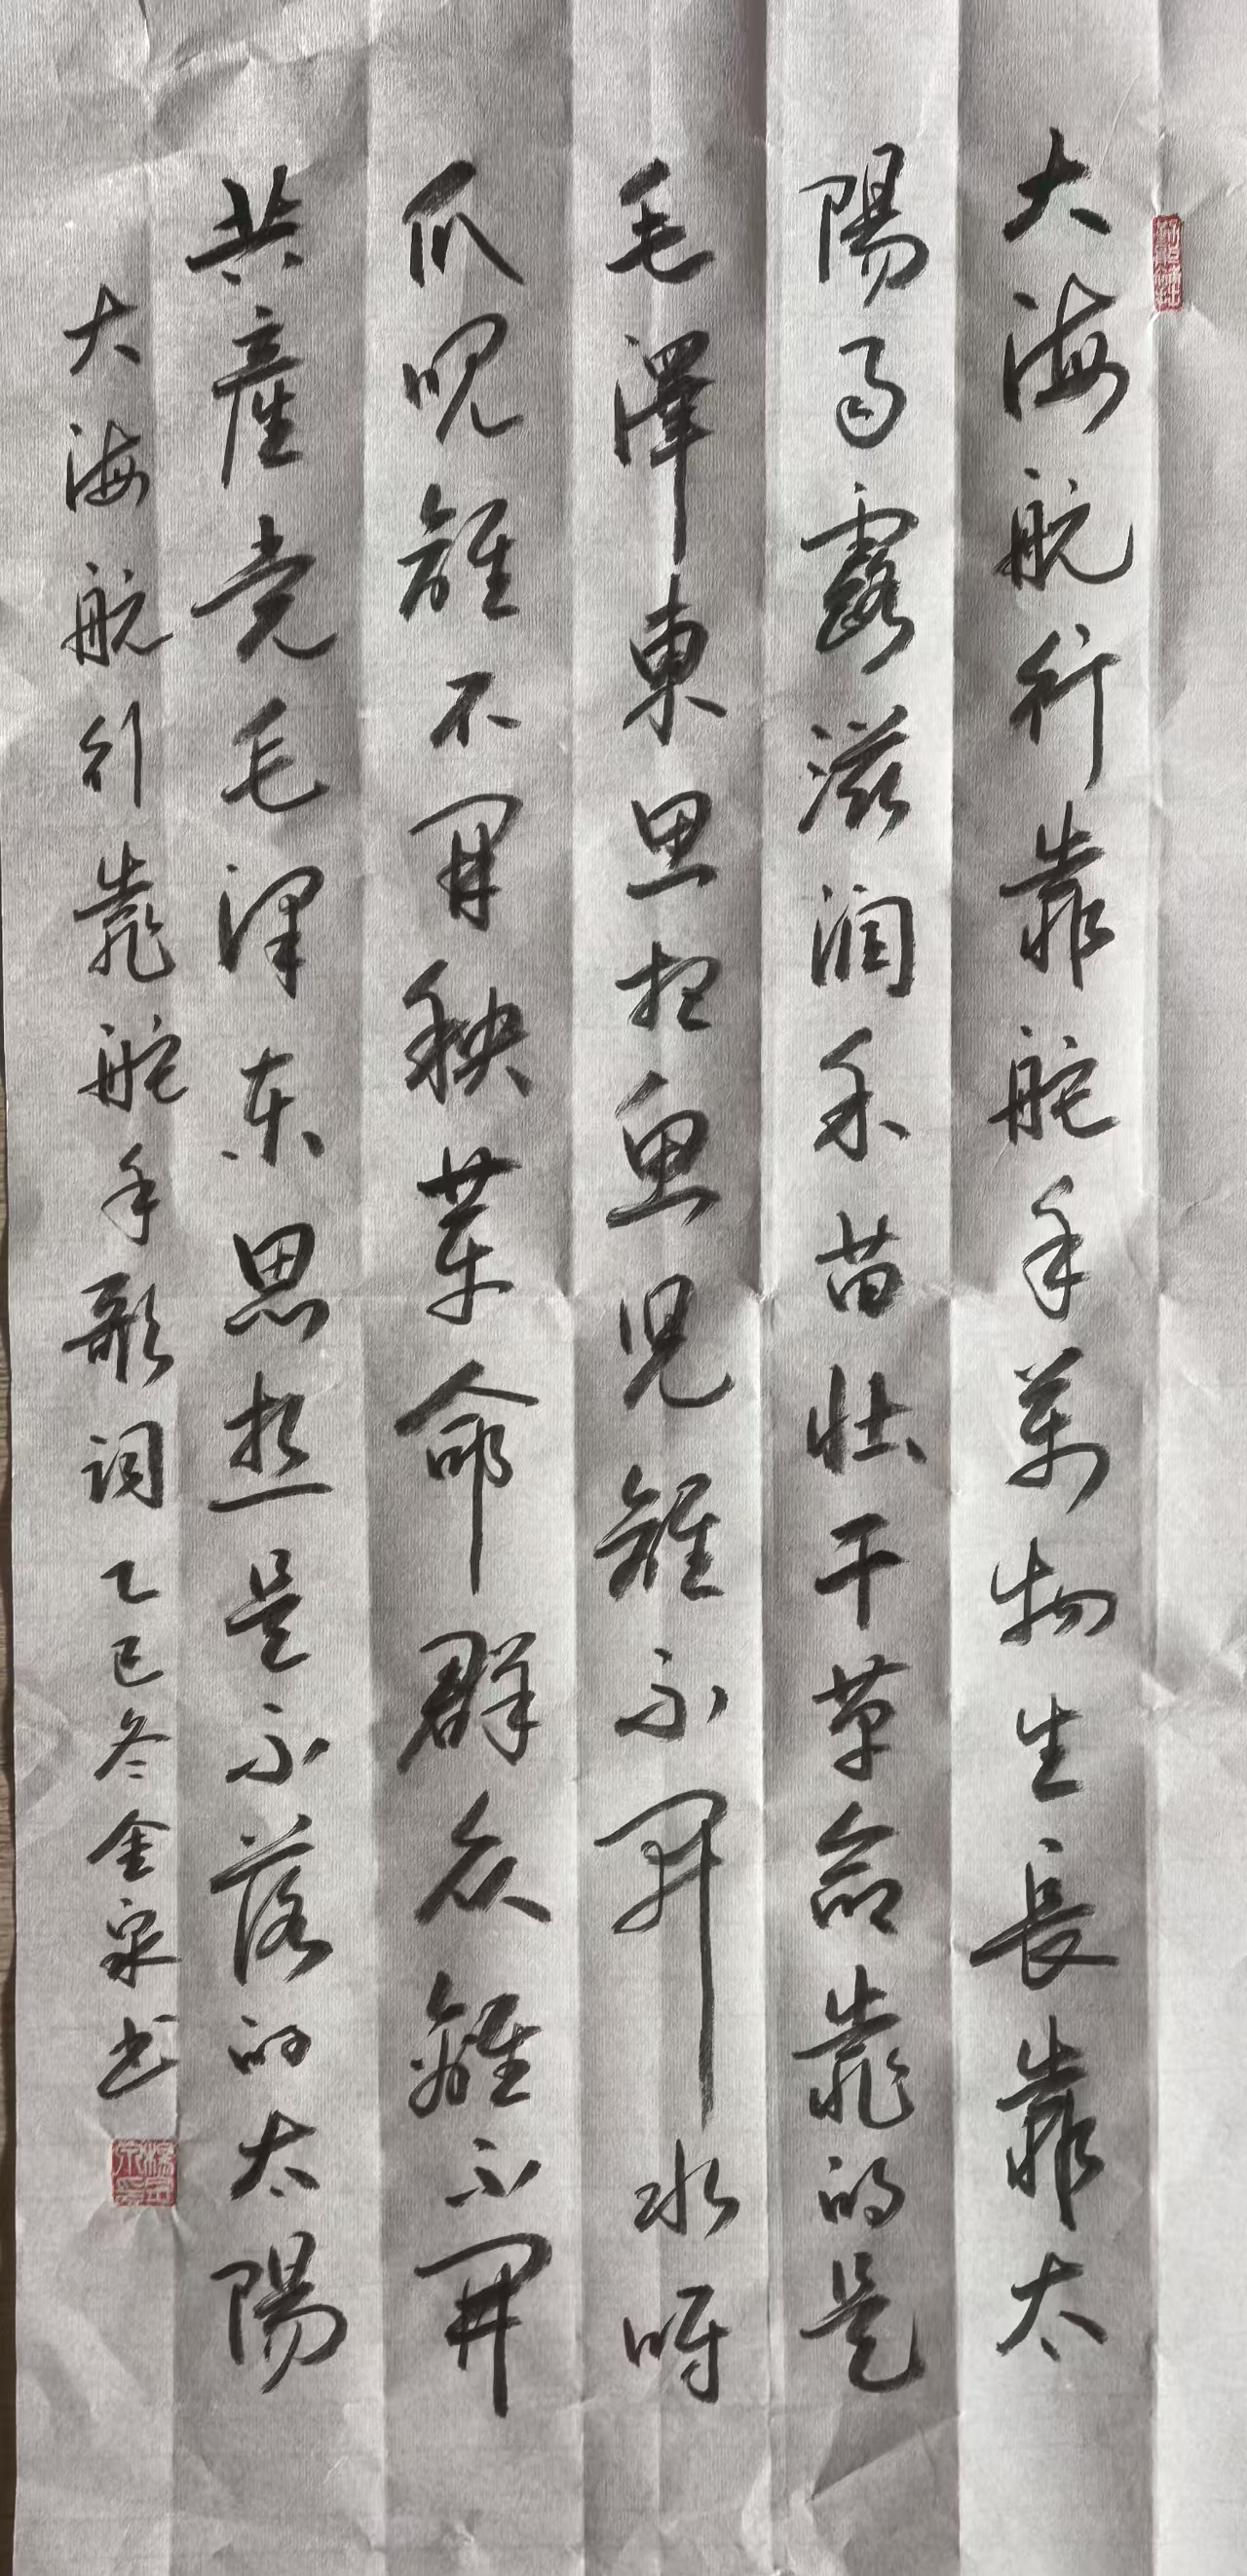 大海航行靠舵手萬物生長靠太
陽雨露滋潤禾苗壯干革命靠的是
毛澤東思想魚児離不開水呀
瓜兒離不開秧革命群众離不開
共産党毛泽东思想是不落的太陽
大海航行靠舵手歌词乙巳冬金泉书